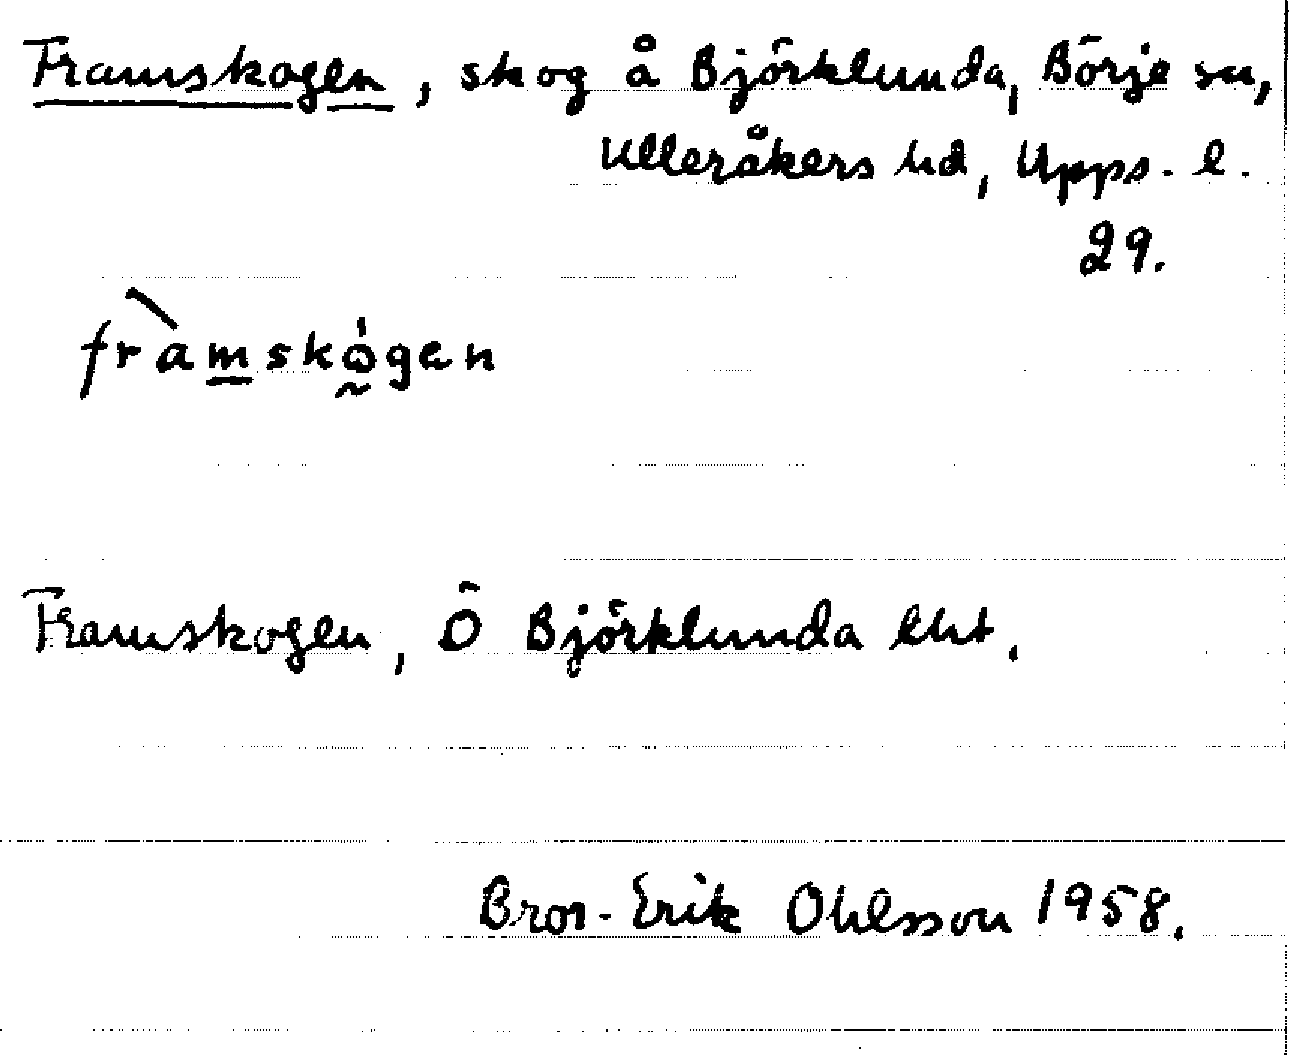 Framskogen, skog å Björklunda, Börje sn,
Ulleråkers hd, Upps. l.
29.
fràmskó̰gen
Framskogen, Ö Björklunda ekt.
Bror-Erik Ohlsson 1958.